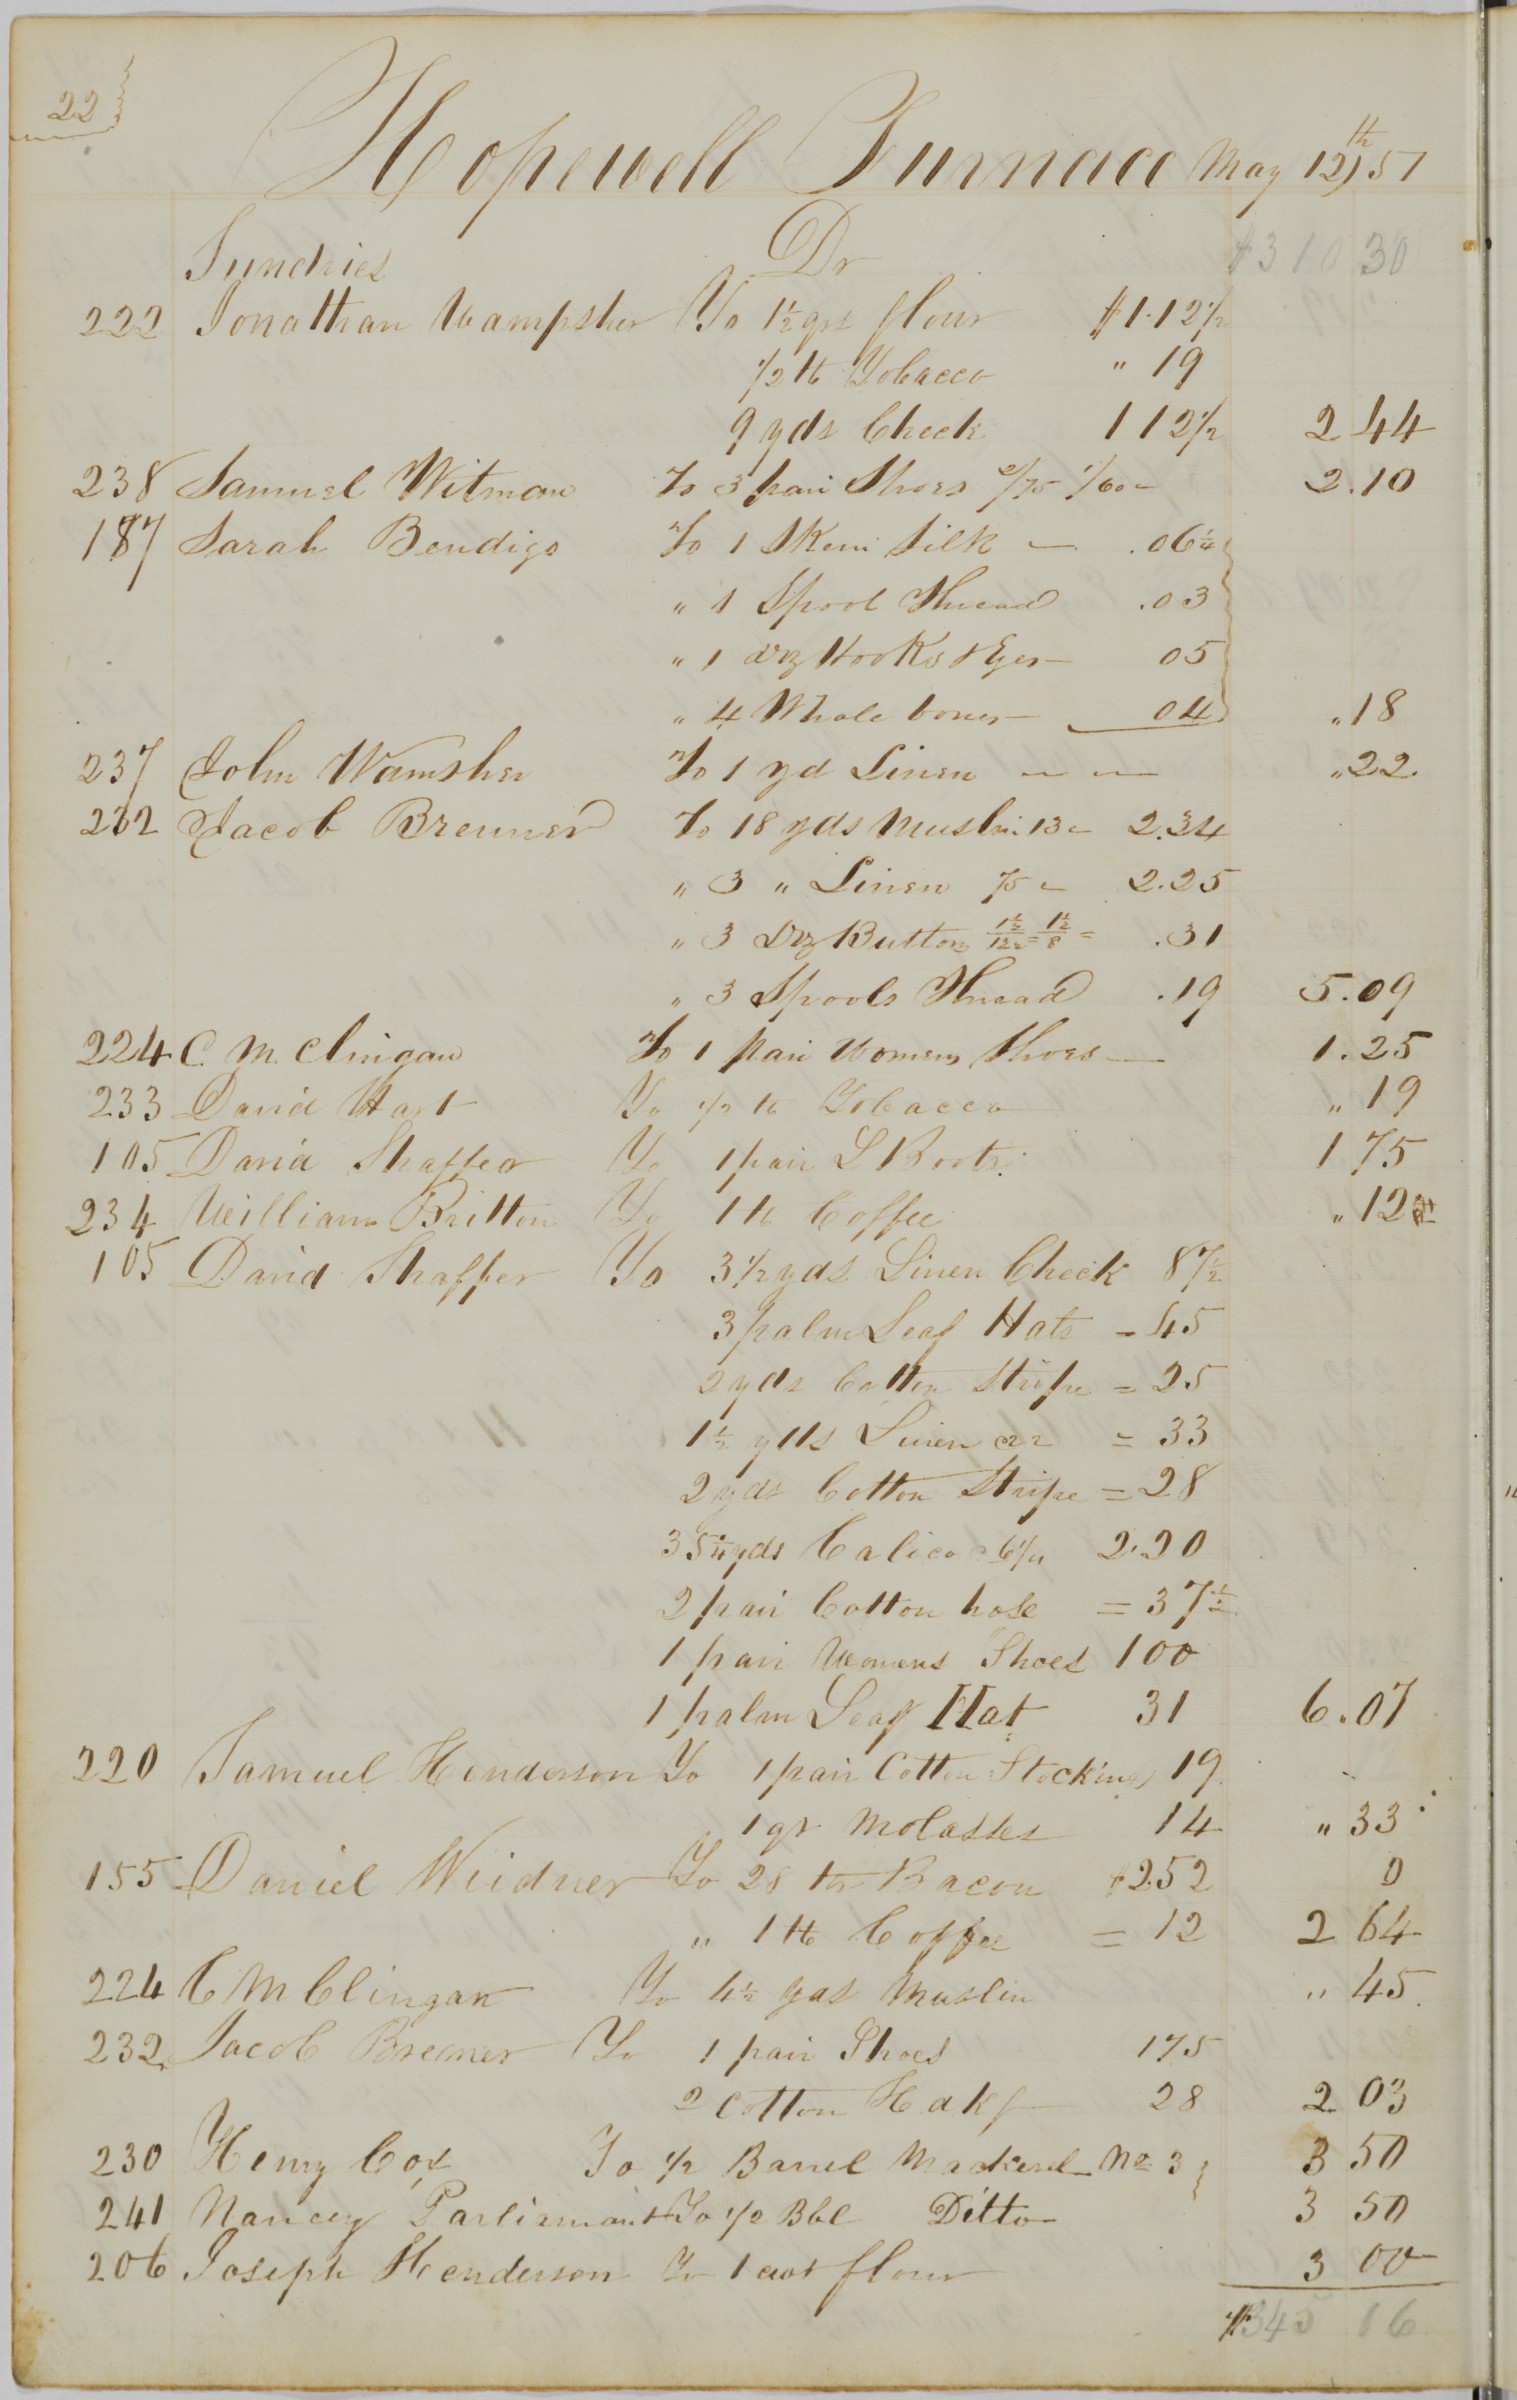 22
Hopewell Furnace May 12th 57
Sundries Dr $310 30
222 Jonathan Wampsher To 1½ qrs flour $1.12½
½ lb Tobacco " 19
9 yds Check 1 12½ 2 44
238 Samuel Witman To 3 pair Shoes 2/75 1/60 2.10
187 Sarah Bendigo To 1 Skein Silk — .06¼
" 1 Spool Thread .03
" 1 doz Hooks & Eyes — 05
" 4 Whale bones — 04 " 18
237 John Wamsher To 1 yd Linen — — " 22.
232 Jacob Brenner To 18 yds Muslin 13 2.34
" 3 " Linen 75 2.25
" 3 Doz Buttons .31
" 3 Spools Thread .19 5.09
224 C. M. Clingan To 1 Pair Womens Shoes — 1.25
233 David Hart To ½ lb Tobacco " 19
105 David Shaffer To 1 pair L Boots. 1 75
234 William Britton To 1 lb Coffee " 12
105 David Shaffer To 3½ yds Linen Check 87½
3 palm Leaf Hats = 45
2 yds Cotton Stripe = 25
1½ yds Linen 22 = 33
2 yds Cotton Stripe = 28
35¼ yds Calico 6¼ 2.20
2 pair Cotton hose = 37½
1 pair Womens Shoes 100
1 palm Leaf Hat 31 6.07
220 Samuel Henderson To 1 pair Cotton Stockings 19
1 qt Molasses 14 " 33
155 Daniel Weidner To 28 lbs Bacon $2.52 0
" 1 lb Coffee = 12 2 64
224 C M Clingan To 4½ yds Muslin " 45
232 Jacob Brenner To 1 pair Shoes 175
2 Cotton Hdkf 28 2 03
230 Henry Cox To ½ Barrel Mackerel No 3 3 50
241 Nancy Parliament To ½ Bbl Ditto 3 50
206 Joseph Henderson To 1 cwt flour 3 00
$345 16